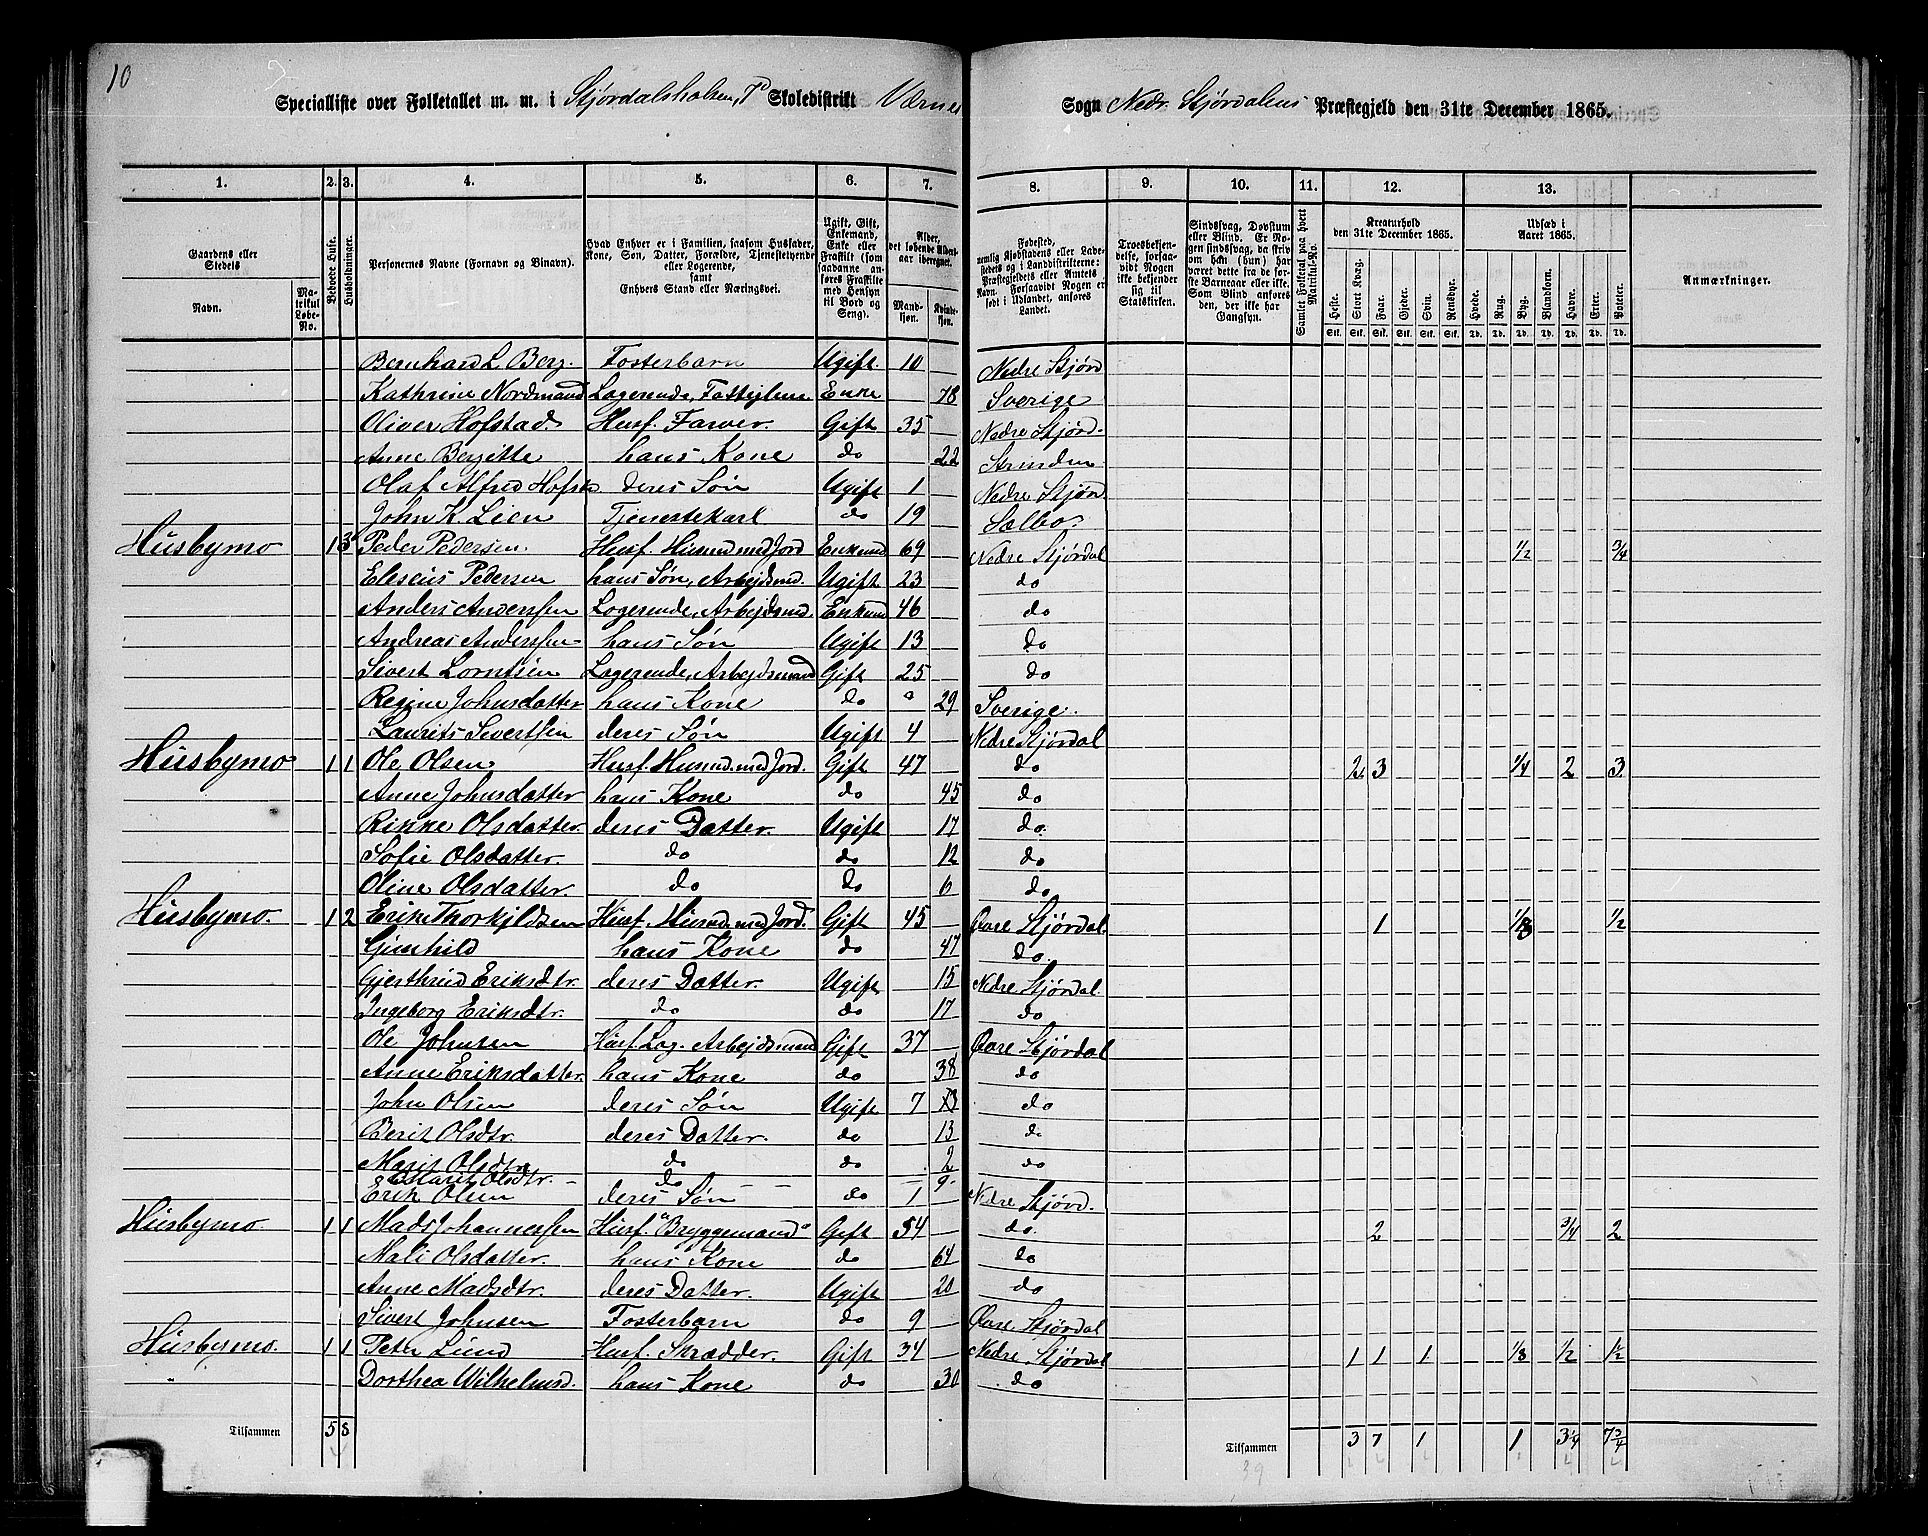 10
Specialliste over Folketallet m. m. i Stjørdalshalsen, 7d Skoledistrikt Værnes Sogn Nedr. Stjørdalens Præstegjeld den 31te December 1865.
1. 2. 3. 4. 5. 6. 7. 8. 9. 10. 11. 12. 13.
Gaardens eller Stedets Navn. Matrikul Løbe-No. Beboede Huse. Husholdninger. Personernes Navne (Fornavn og Binavn). Hvad Enhver er i Familien, saasom Husfader, Kone, Søn, Datter, Forældre, Tjenestetyende eller Logerende, samt Enhvers Stand eller Næringsvei. Ugift, Gift, Enkemand, Enke eller Fraskilt (som saadanne anføres Fraskilte med Hensyn til Bord og Seng). Alder, det løbende Alders-aar iberegnet. Mandkjøn. Kvindekjøn.
Kreaturhold den 31te December 1865. Udsæd i Aaret 1865. Anmærkninger.
Heste. Stort Kvæg. Faar. Gjeder. Svin. Rensdyr. Hvede. Rug. Byg. Blandkorn. Havre. Erter. Poteter.
Bernhard L. Berg. Fosterbarn Ugift. 10 Nedre Stjørd
Kathrine Nordmand Logerende, Fattiglem Enke 78 Sverige
Oliver Hofstad. Husf. Farver. Gift 35 Nedre Stjørd.
Anne Bergitte hans Kone do 22 Strinden
Olaf Alfred Hofsta deres Søn Ugift 1 Nedre Stjørd
John K. Lien Tjenestekarl do 19 Sælbo.
Husbymo 1 3 Peder Pedersen. Husf. Husmd med Jord Enkemd 69 Nedre Stjørdal 1/2 3/4
Eleseus Pedersen hans Søn, Arbejdsmd. Ugift 23 do
Anders Anderssen Logerende, Arbejdsmd. Enkemd 46 do
Andreas Anderssen hans Søn Ugift 13 do
Sivert Lorntsen Logerende, Arbejdsmand Gift 25 do
Regine Johnsdatter hans Kone do 29 Sverige.
Laurits Sivertsen deres Søn Ugift 4 Nedre Stjørdal
Husbymo 1 1 Ole Olsen Husf. Husmd. med Jord. Gift 47 do 2 3 1/4 2 3
Anne Johnsdatter hans Kone do 45 do
Rikke Olsdatter deres Datter. Ugift 17 do.
Sofie Olsdatter. do do 12 do
Oline Olsdatter. do do 6 do
Husbymo. 1 2 Erik Thorkjeldsen Husf. Husmd. med Jord. Gift 45 Øvre Stjørdal. 1 1/8 1/2
Gunhild hans Kone do 47 do.
Gjerthrud Eriksdtr. deres Datter. Ugift 15 Nedre Stjørdal.
Ingeborg Eriksdtr. do do 17 do
Ole Johnsen Husf. Log. Arbejdsmand Gift 37 Øvre Stjørdal
Anne Eriksdatter. hans Kone do 38 do
John Olsen deres Søn Ugift 7 do
Berit Olsdtr. deres Datter. do 13 do
Marit Olsdtr do do 2 do
Olsdtr. do 9
Erik Olsen deres Søn do 1 Nedre Stjørd.
Husbymo 1 1 Mads Johannessen Husf. "Bryggemand" Gift 54 do. 2 3/4 2
Mali Olsdatter. hans Kone do 64 do
Anne Madsdtr. deres Datter. Ugift 20 do
Sivert Johnsen Fosterbarn do 9 Øvre Stjørdal
Husbymo. 1 1 Peter Lund Husf. Skrædder. Gift 34 Nedre Stjørdal 1 1 1 1/8 1/2 1/2
Dorthea Wilhelmsd. hans Kone do 30 do
Tilsammen 5 8 Tilsammen 3 7 1 1 3 1/4 7 3/4
39